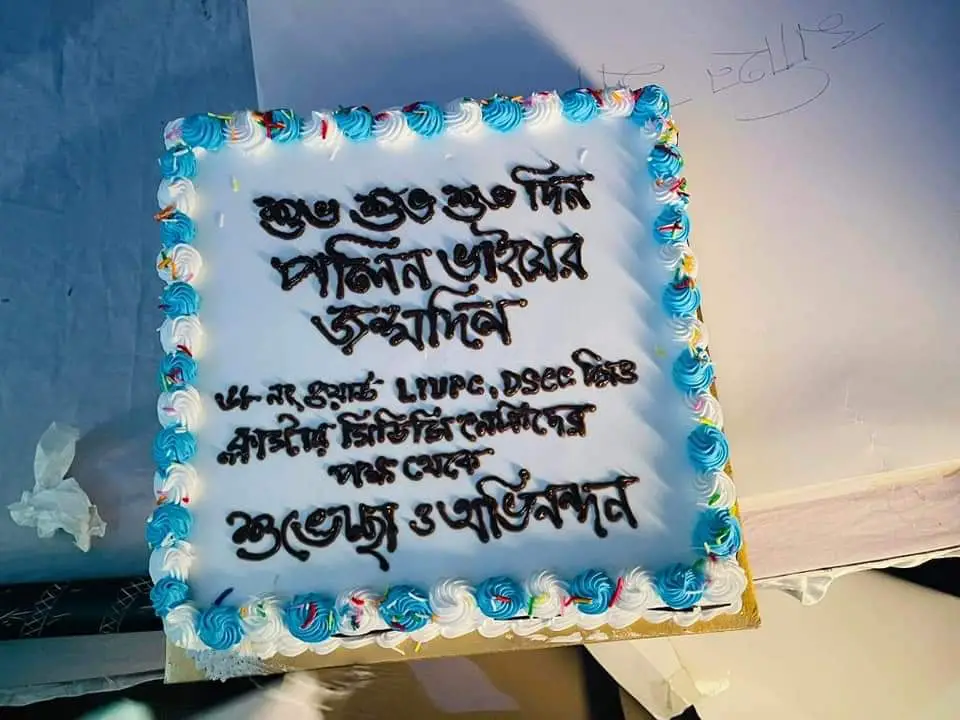 শুভ শুভ শুভ দিন
পলিন ভাইয়ের
জন্মদিন
নং ওয়ার্ড LIUPC, DSCC সিও
ক্লাস্টার সিডিসি নেত্রীদের
পক্ষ থেকে
শুভেচ্ছা ও অভিনন্দন